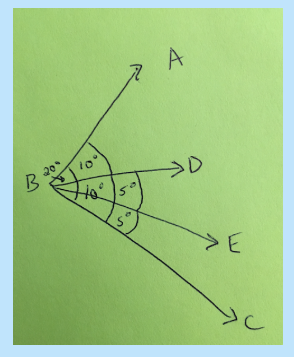 A
20° 10°
D
B
10° 5°
5°
E
C